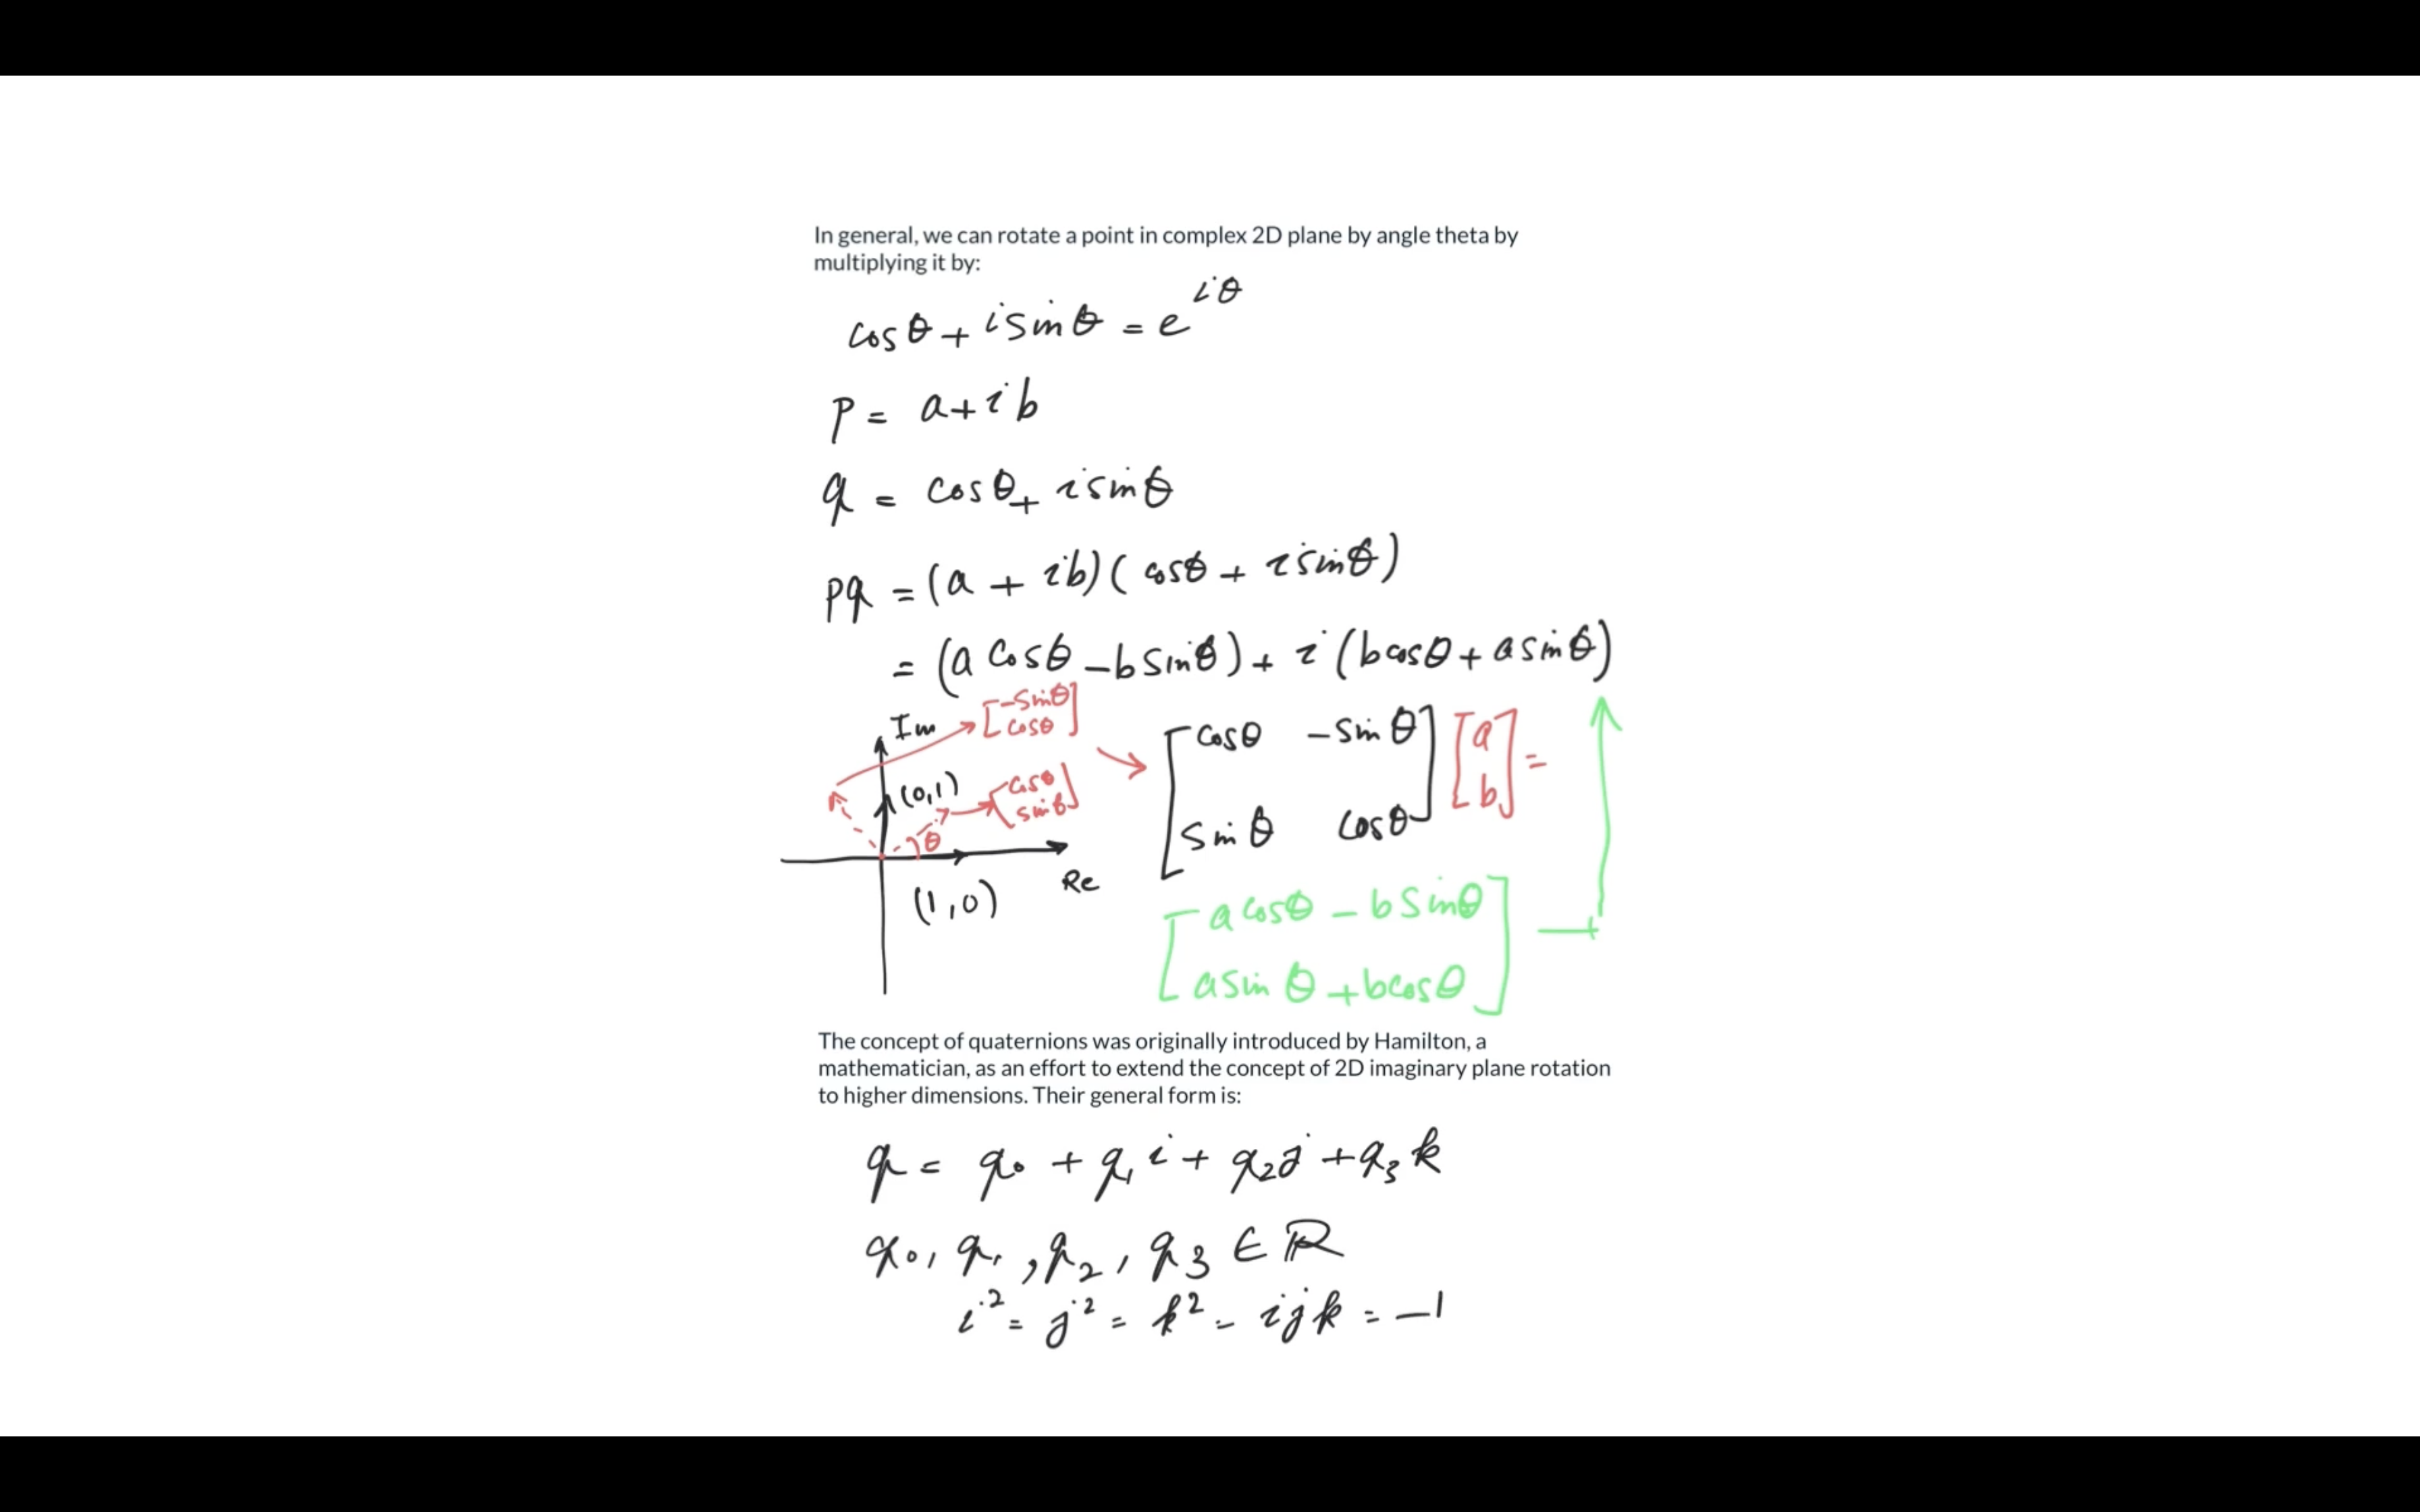 In general, we can rotate a point in complex 2D plane by angle theta by
multiplying it by:
cosθ + i sinθ = e^{iθ}
p = a + ib
q = cosθ + i sinθ
pq = (a + ib)(cosθ + i sinθ)
= (a cosθ - b sinθ) + i (b cosθ + a sinθ)
Im
[-sinθ
cosθ]
(0,1)
[cosθ
sinθ]
θ
Re
(1,0)
[cosθ -sinθ
sinθ cosθ]
[a
b] =
[a cosθ - b sinθ
a sinθ + b cosθ]
The concept of quaternions was originally introduced by Hamilton, a
mathematician, as an effort to extend the concept of 2D imaginary plane rotation
to higher dimensions. Their general form is:
q = q₀ + q₁ i + q₂ j + q₃ k
q₀, q₁, q₂, q₃ ∈ ℝ
i² = j² = k² = ijk = -1